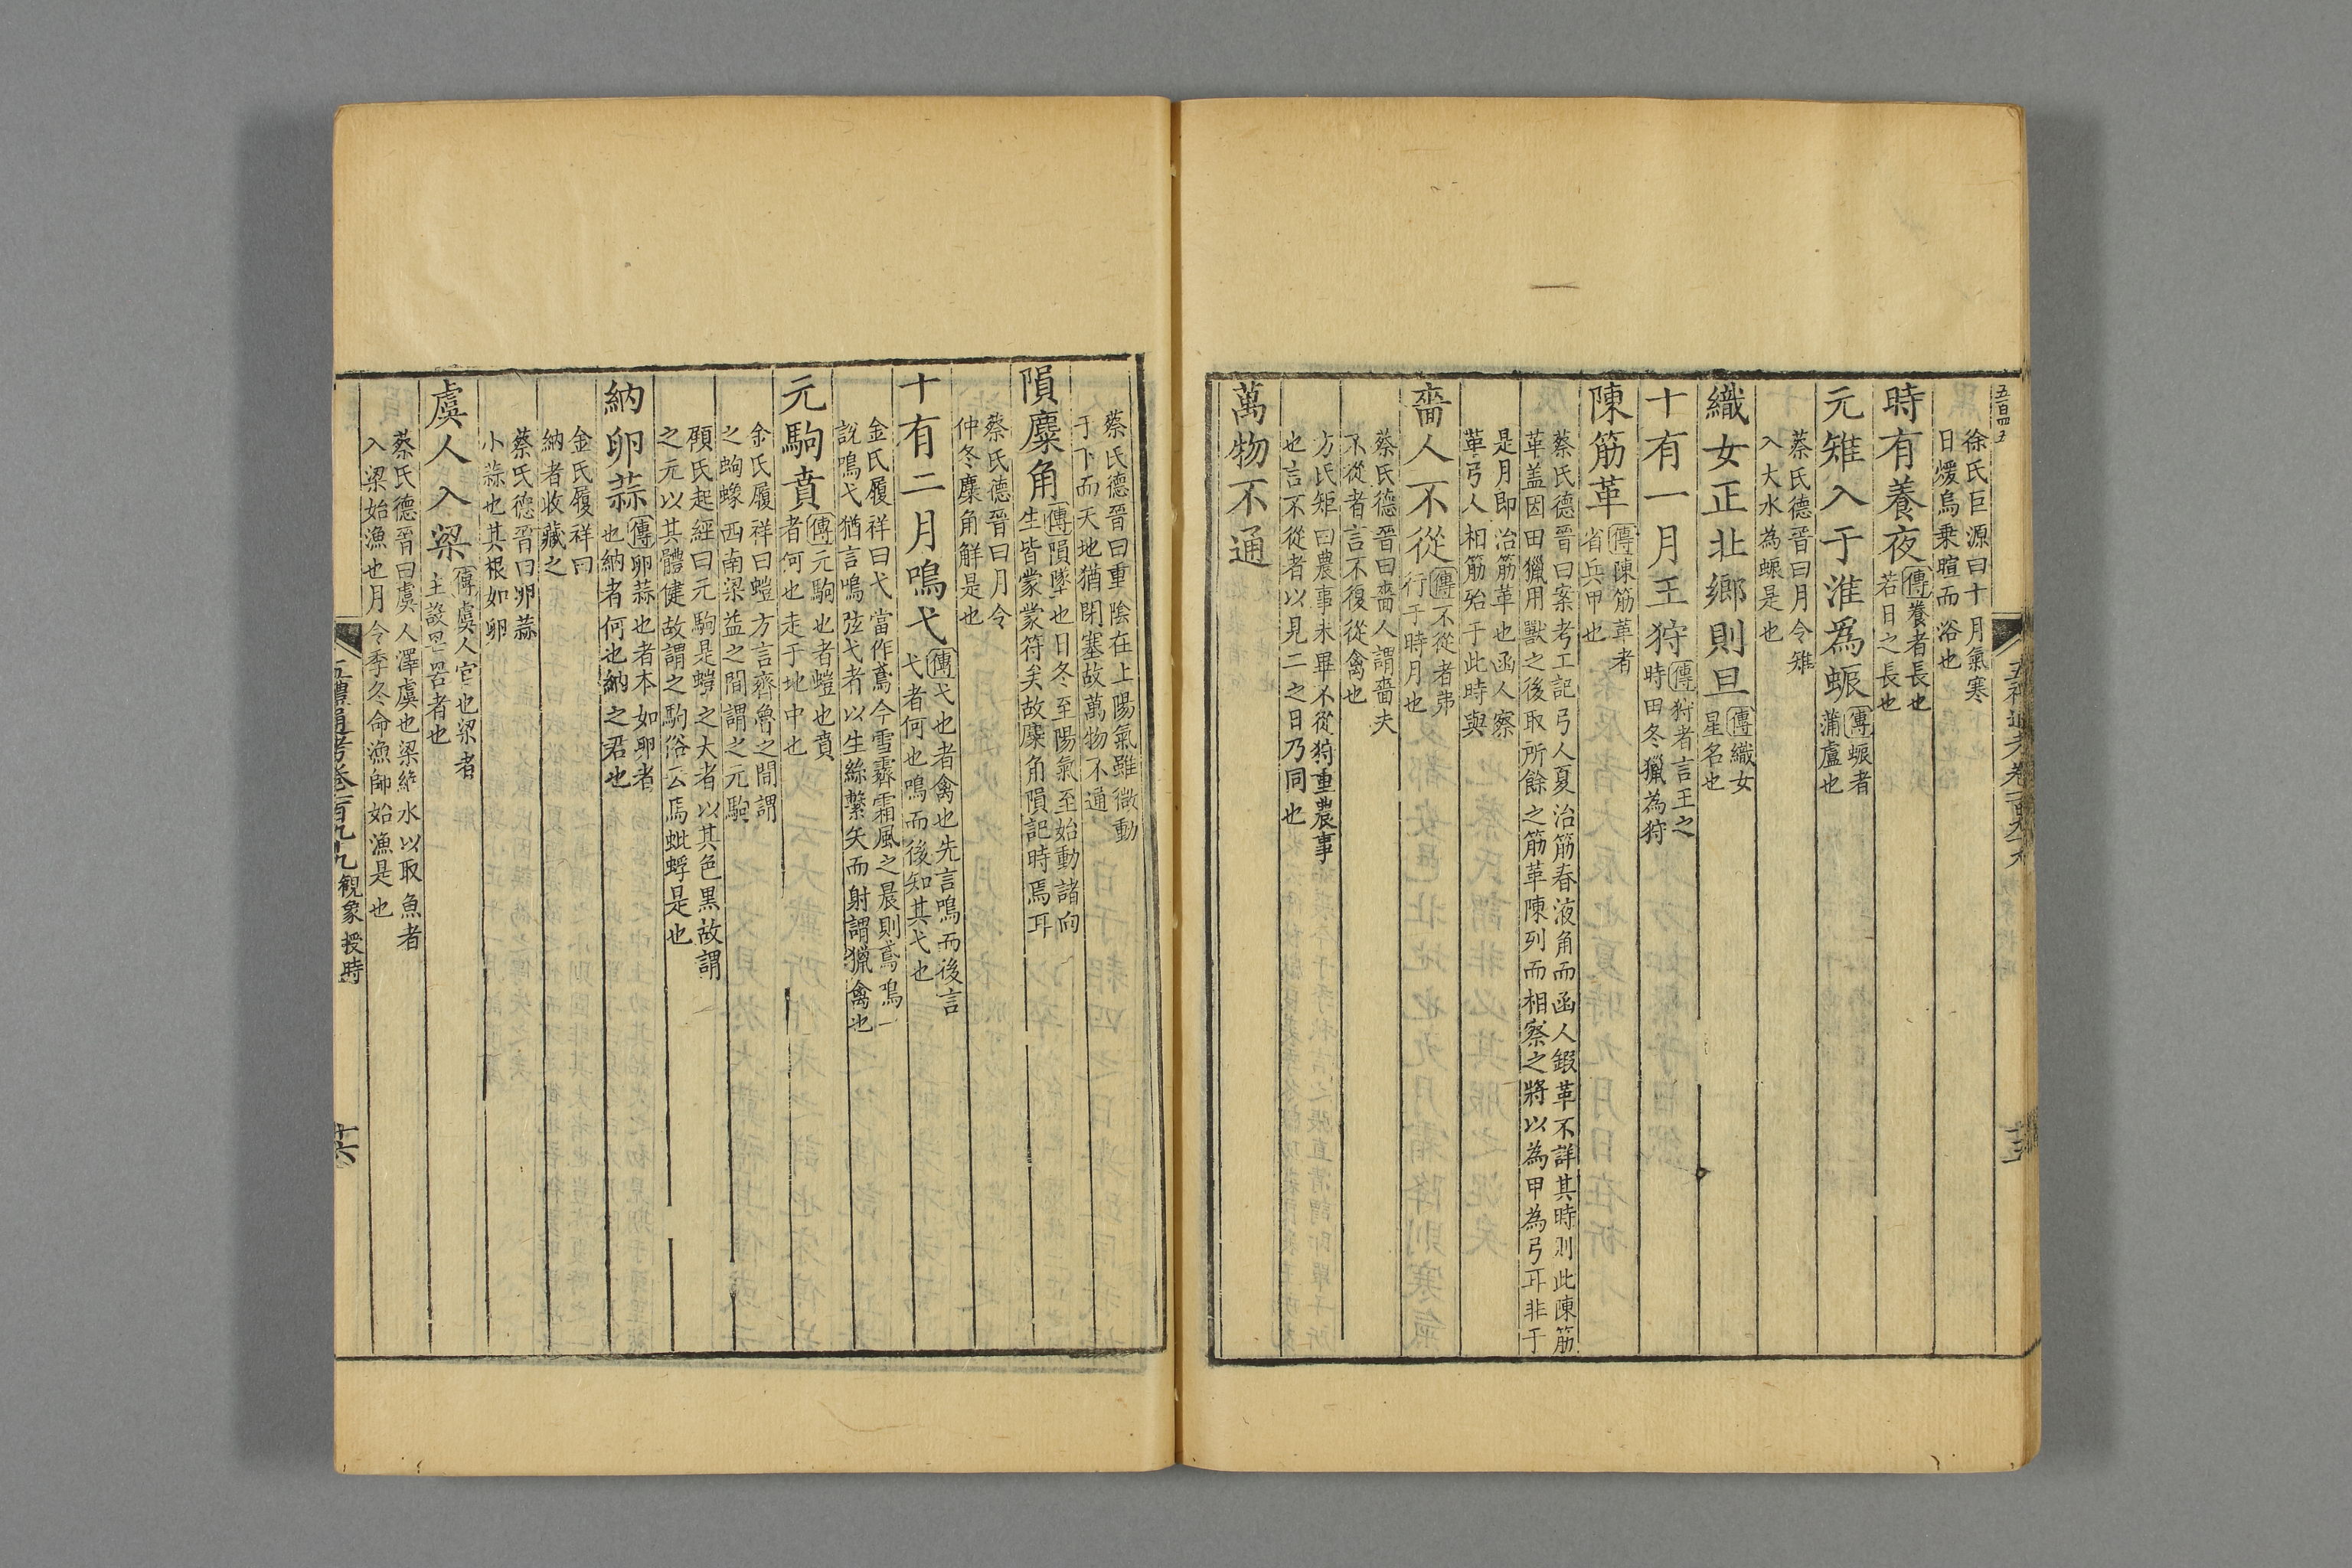 五百四五
徐氏巨源曰十月氣寒
日煖烏乗暄而浴也
時有養夜傳養者長也
若日之長也
元雉入于淮爲蜃傳蜃者
蒲盧也
蔡氏德晉曰月令雉
入大水為蜃是也
織女正北鄉則旦傳織女
星名也
十有一月王狩傳狩者言王之
時田冬獵為狩
陳筋革傳陳筋革者
省兵甲也
蔡氏德晉曰案考工記弓人夏治筋春液角而函人鍜革不詳其時則此陳筋
革盖因田獵用獸之後取所餘之筋革陳列而相察之將以為甲為弓耳非于
是月即治筋革也函人察
革弓人相筋殆于此時與
嗇人不從傳不從者弗
行于時月也
蔡氏德晉曰嗇人謂嗇夫
不從者言不復從禽也
方氏矩曰農事未畢不從狩重農事
也言不從者以見二之日乃同也
萬物不通
蔡氏德晉曰重陰在上陽氣雖微動
于下而天地猶閉塞故萬物不通
隕麋角傳隕墜也日冬至陽氣至始動諸向
生皆蒙蒙符矣故麋角隕記時焉耳
蔡氏德晉曰月令
仲冬麋角解是也
十有二月鳴弋傳弋也者禽也先言鳴而後言
弋者何也鳴而後知其弋也
金氏履祥曰弋當作鳶今雪霽霜風之晨則鳶鳴一
說鳴弋猶言鳴弦弋者以生絲繫矢而射謂獵禽也
元駒賁傳元駒也者螘也賁
者何也走于地中也
金氏履祥曰螘方言齊魯之間謂
之蚼蟓西南梁益之間謂之元駒
顧氏起經曰元駒是螘之大者以其色黒故謂
之元以其體健故謂之駒俗云馬蚍蜉是也
納卵蒜傳卵蒜也者本如卵者
也納者何也納之君也
金氏履祥曰
納者收藏之
蔡氏德晉曰卵蒜
小蒜也其根如卵
虞人入梁傳虞人官也梁者
主設罔罟者也
蔡氏德晉曰虞人澤虞也梁絶水以取魚者
入梁始漁也月令季冬命漁師始漁是也
五禮通考卷一百九九觀象授時